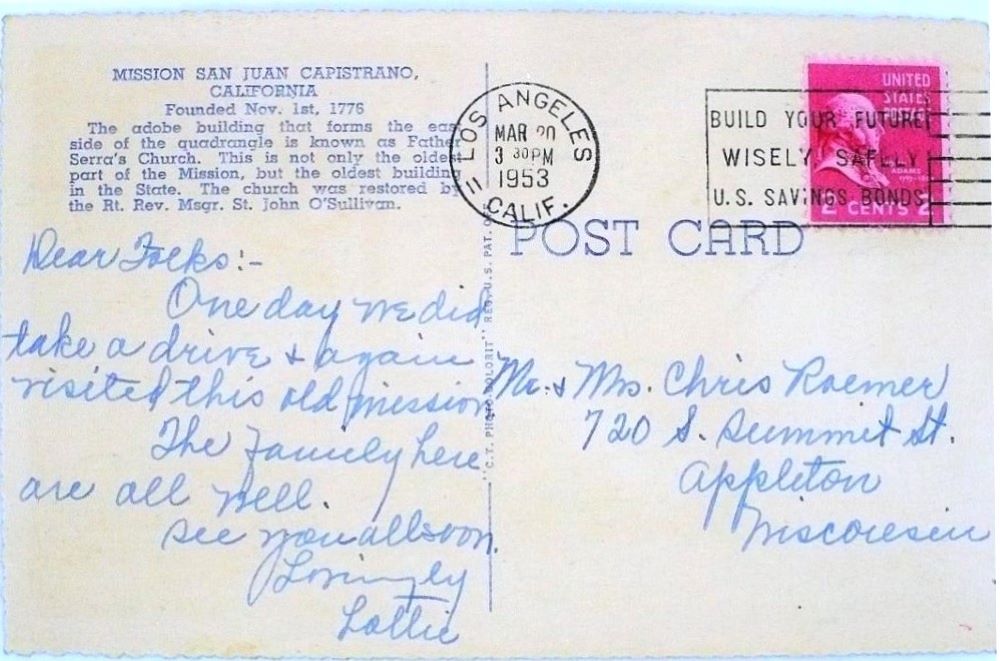 MISSION SAN JUAN CAPISTRANO,
CALIFORNIA
Founded Nov. 1st, 1776
The adobe building that forms the east
side of the quadrangle is known as Father
Serra's Church. This is not only the oldest
part of the Mission, but the oldest building
in the State. The church was restored by
the Rt. Rev. Msgr. St. John O'Sullivan.
Dear Folks:-
One day we did
take a drive & again
visited this old mission
The Family here
are all well.
See you all soon.
Lovingly
Lottie
"C.T. PHOTO-COLORIT" REG. U.S. PAT. O
LOS ANGELES
MAR 20
3 30PM
1953
11 CALIF.
BUILD YOUR FUTURE
WISELY SAFELY
U.S. SAVINGS BONDS
UNITED
STATES
POSTAGE
ADAMS
2 CENTS 2
POST CARD
Mr. & Mrs. Chris Roemer
720 S. Summit St.
Appleton
Wisconsin